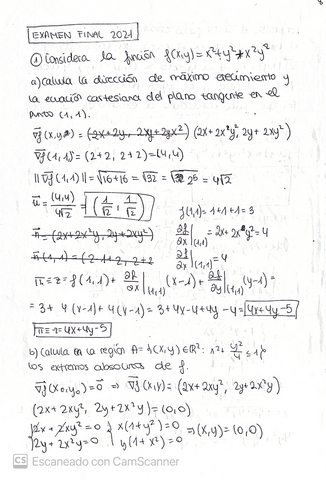 EXAMEN FINAL 2021
① Considera la función f(x,y)=x²+y²+x²y²
a) Calcula la dirección de máximo crecimiento y
la ecuación cartesiana del plano tangente en el
punto (1,1).
∇f(x,y) = (2x+2y, 2xy+2yx²) (2x+2x²y, 2y+2xy²)
∇f(1,1) = (2+2, 2+2) = (4,4)
||∇f(1,1)|| = √16+16 = √32 = 2⁵ = 4√2
u = (4,4)/4√2 = (1/√2, 1/√2)
f(1,1) = 1+1+1 = 3
n = (2x+2x²y, 2y+2xy²)
∂f/∂x |(1,1) = 2x+2x²y = 4
n(1,1) = (2+2, 2+2
∂f/∂x |(1,1) = 4
π ≡ z = f(1,1) + ∂f/∂x |(1,1) (x-1) + ∂f/∂y |(1,1) (y-1) =
= 3 + 4(x-1) + 4(y-1) = 3+4x-4+4y-4 = 4x+4y-5
π ≡ 4x+4y-5
b) Calcula en la región A = {(x,y) ∈ ℝ² : x² + y²/4 ≤ 1}
los extremos absolutos de f.
∇f(x₀,y₀) = 0 ⇒ ∇f(x,y) = (2x+2xy², 2y+2x²y)
(2x+2xy², 2y+2x²y) = (0,0)
2x+2xy²=0 { x(1+y²)=0
2y+2x²y=0 { y(1+x²)=0 ⇒ (x,y) = (0,0)
CS Escaneado con CamScanner